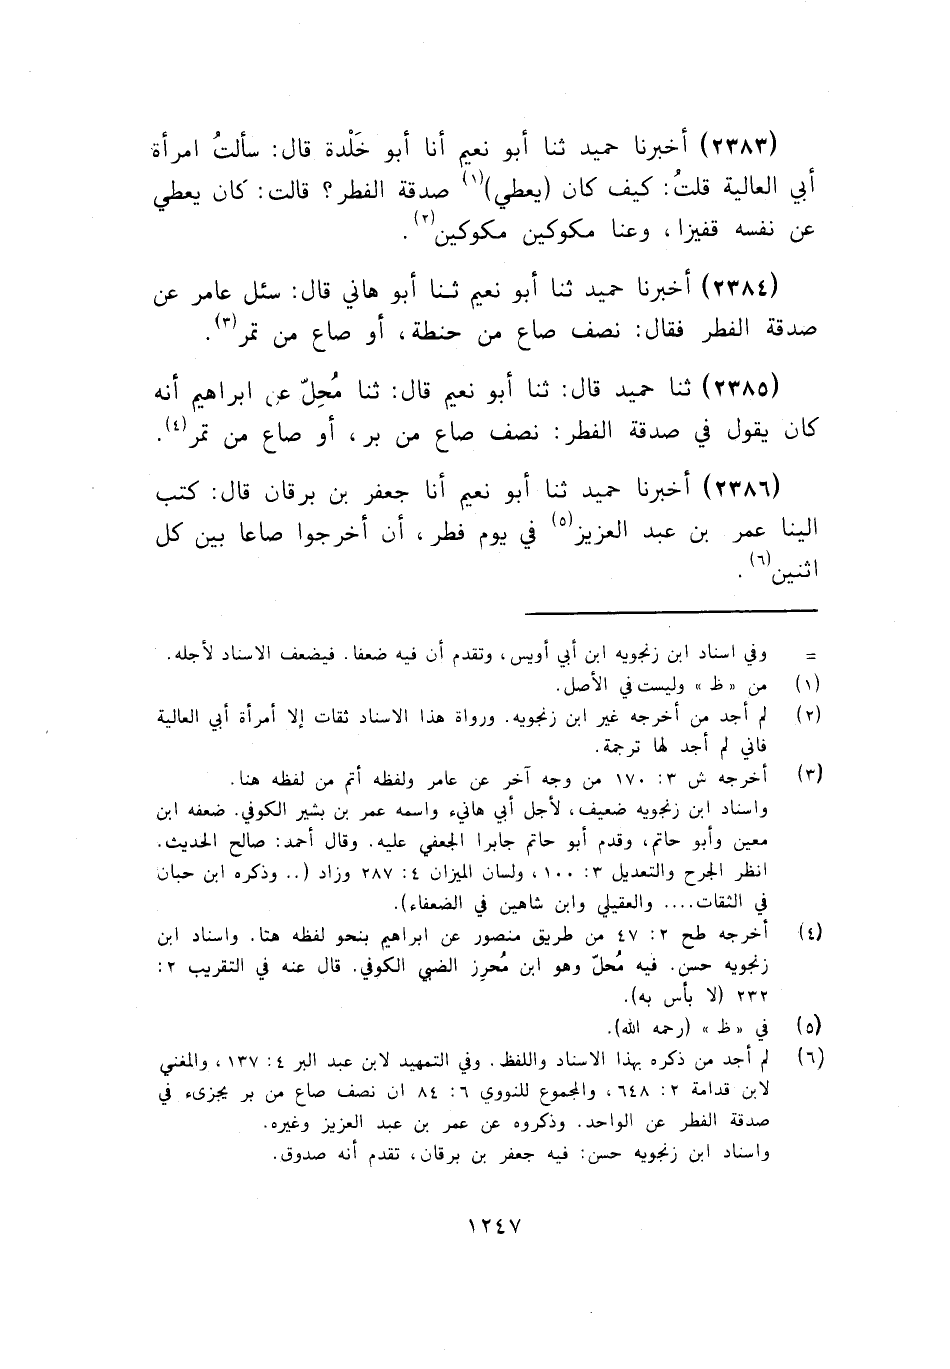 (٢٣٨٣) أخبرنا حميد ثنا أبو نعيم أنا أبو خَلْدة قال: سألتُ امرأة
أبي العالية قلتُ: كيف كان (يعطي)(١) صدقة الفطر؟ قالت: كان يعطي
عن نفسه قفيزا، وعنا مكوكين مكوكين(٢).
(٢٣٨٤) أخبرنا حميد ثنا أبو نعيم ثنا أبو هاني قال: سئل عامر عن
صدقة الفطر فقال: نصف صاع من حنطة، أو صاع من تمر(٣).
(٢٣٨٥) ثنا حميد قال: ثنا أبو نعيم قال: ثنا مُحِلّ عن ابراهيم أنه
كان يقول في صدقة الفطر: نصف صاع من بر، أو صاع من تمر(٤).
(٢٣٨٦) أخبرنا حميد ثنا أبو نعيم أنا جعفر بن برقان قال: كتب
الينا عمر بن عبد العزيز(٥) في يوم فطر، أن أخرجوا صاعا بين كل
اثنين(٦).
= وفي اسناد ابن زنجويه ابن أبي أويس، وتقدم أن فيه ضعفا. فيضعف الاسناد لأجله.
(١) من «ظ» وليست في الأصل.
(٢) لم أجد من أخرجه غير ابن زنجويه. ورواة هذا الاسناد ثقات إلا أمرأة أبي العالية
فاني لم أجد لها ترجمة.
(٣) أخرجه ش ٣: ١٧٠ من وجه آخر عن عامر ولفظه أتم من لفظه هنا.
واسناد ابن زنجويه ضعيف، لأجل أبي هانيء واسمه عمر بن بشير الكوفي. ضعفه ابن
معين وأبو حاتم، وقدم أبو حاتم جابرا الجعفي عليه. وقال أحمد: صالح الحديث.
انظر الجرح والتعديل ٣: ١٠٠، ولسان الميزان ٤: ٢٨٧ وزاد (.. وذكره ابن حبان
في الثقات.... والعقيلي وابن شاهين في الضعفاء).
(٤) أخرجه طح ٢: ٤٧ من طريق منصور عن ابراهيم بنحو لفظه هنا. واسناد ابن
زنجويه حسن. فيه مُحلّ وهو ابن مُحرِز الضبي الكوفي. قال عنه في التقريب ٢:
٢٣٢ (لا بأس به).
(٥) في «ظ» (رحمه الله).
(٦) لم أجد من ذكره بهذا الاسناد واللفظ. وفي التمهيد لابن عبد البر ٤: ١٣٧، والمغني
لابن قدامة ٢: ٦٤٨، والمجموع للنووي ٦: ٨٤ ان نصف صاع من بر يجزىء في
صدقة الفطر عن الواحد. وذكروه عن عمر بن عبد العزيز وغيره.
واسناد ابن زنجويه حسن: فيه جعفر بن برقان، تقدم أنه صدوق.
١٢٤٧